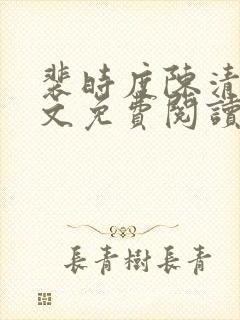 裴時度陳清
文免費閱讀
長青樹長青